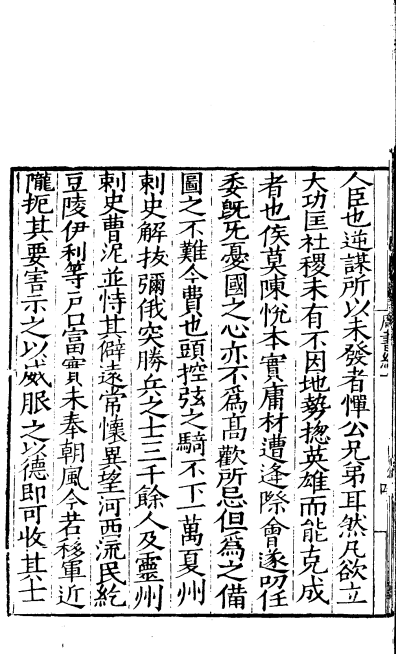 人臣也逆謀所以未發者憚公兄弟耳然凡欲立
大功匡社稷未有不因地勢揔英雄而能克成
者也侯莫陳悅本實庸材遭逢際會遂叨任
委旣旡憂國之心亦不爲高歡所忌但爲之備
圖之不難今費也頭控弦之騎不下一萬夏州
刺史解拔彌俄突勝兵之士三千餘人及靈州
刺史曹泥並恃其僻遠常懷異望河西流民紇
豆陵伊利等戶口富實未奉朝風今若移軍近
隴扼其要害示之以威服之以德即可收其士